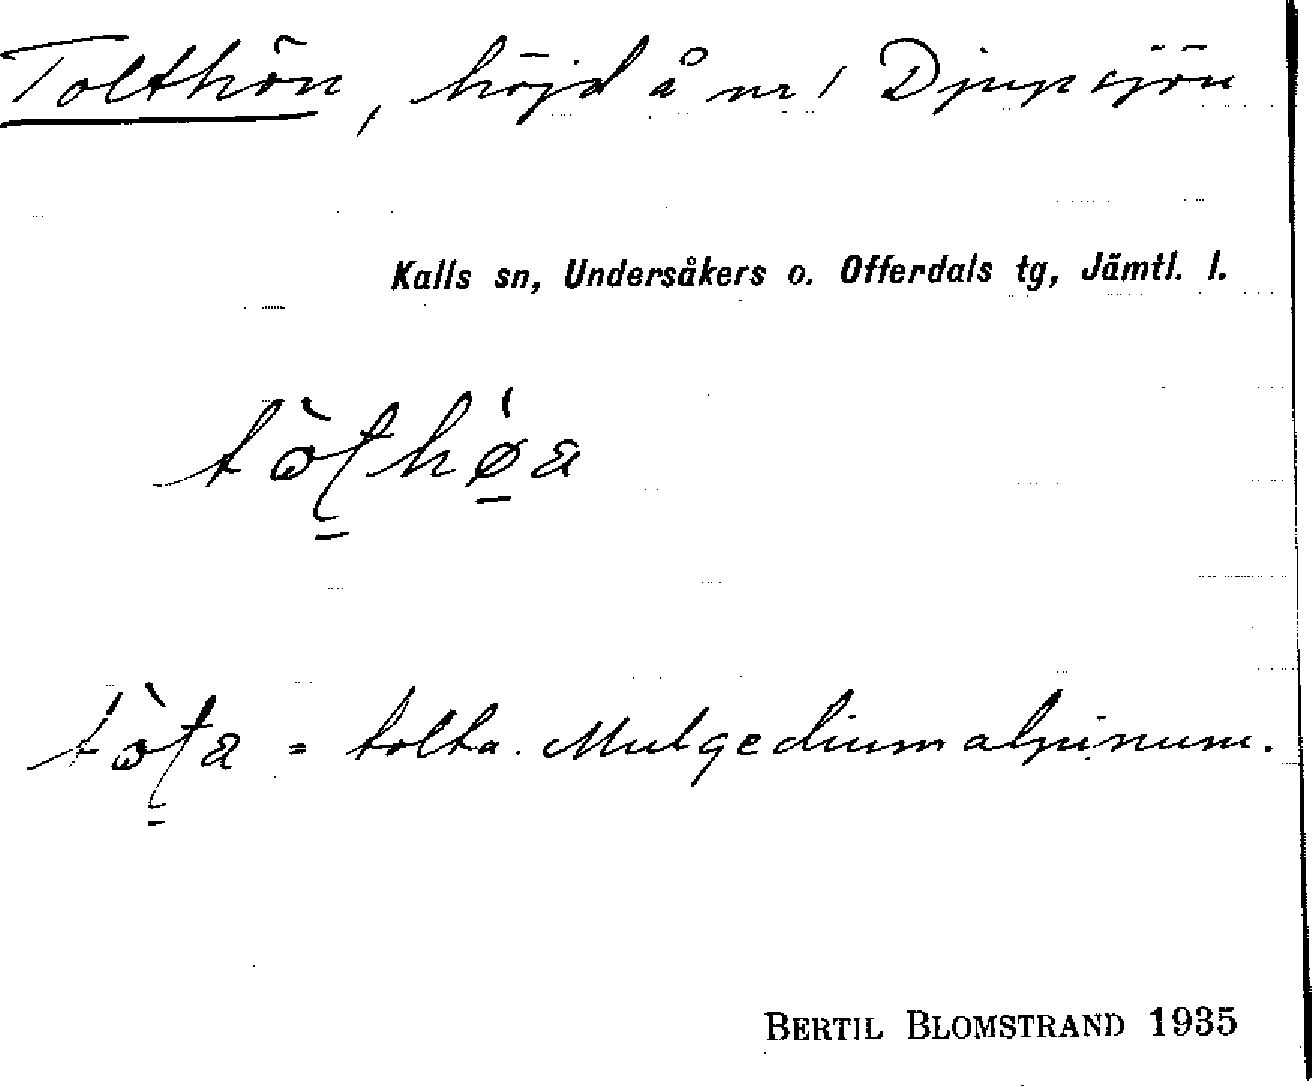 Tolthön, höjd å nr 1 Djupsjön
Kalls sn, Undersåkers o. Offerdals tg, Jämtl. l.
tolta. Mulgedium alpinum.
BERTIL BLOMSTRAND 1935